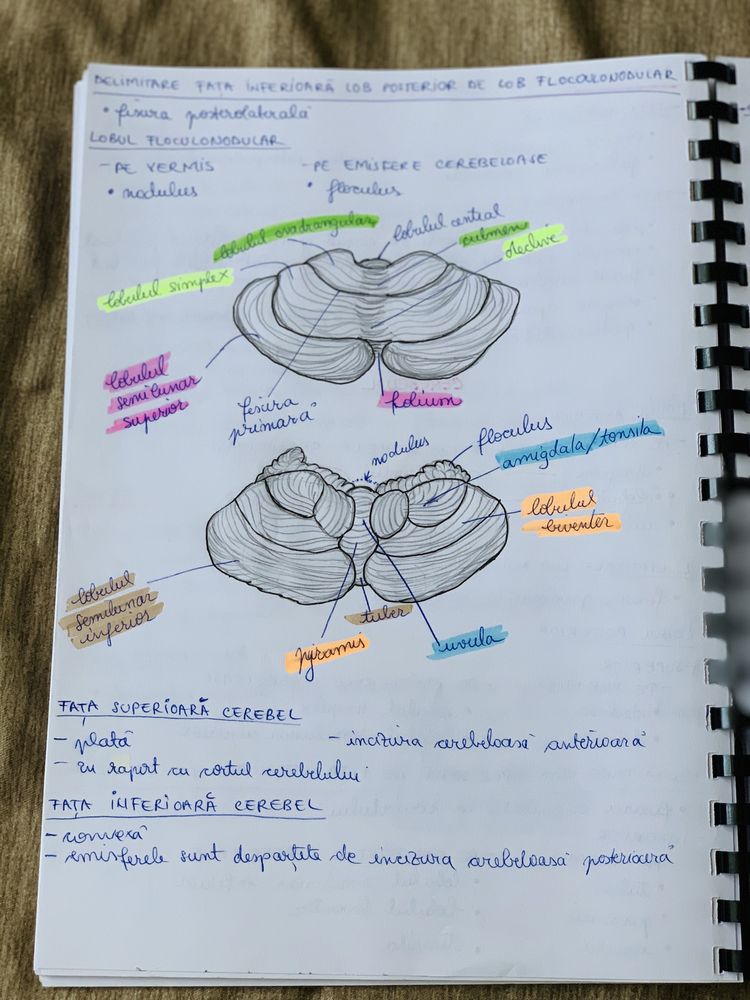 DELIMITARE FAȚA INFERIOARĂ LOB POSTERIOR DE LOB FLOCULONODULAR
• fisura posterolaterală
LOBUL FLOCULONODULAR
- PE VERMIS - PE EMISFERE CEREBELOASE
• nodulus • floculus
lobulul cvadrangular
lobulul central
culmen
declive
lobulul simplex
lobulul
semilunar
superior
fisura
primară
folium
nodulus
floculus
amigdala/tonsila
lobulul
biventer
lobulul
semilunar
inferior
tuber
piramis
uvula
FAȚA SUPERIOARĂ CEREBEL
- plată - incizura cerebeloasă anterioară
- în raport cu cortul cerebelului
FAȚA INFERIOARĂ CEREBEL
- convexă
- emisferele sunt despărțite de incizura cerebeloasă posterioară